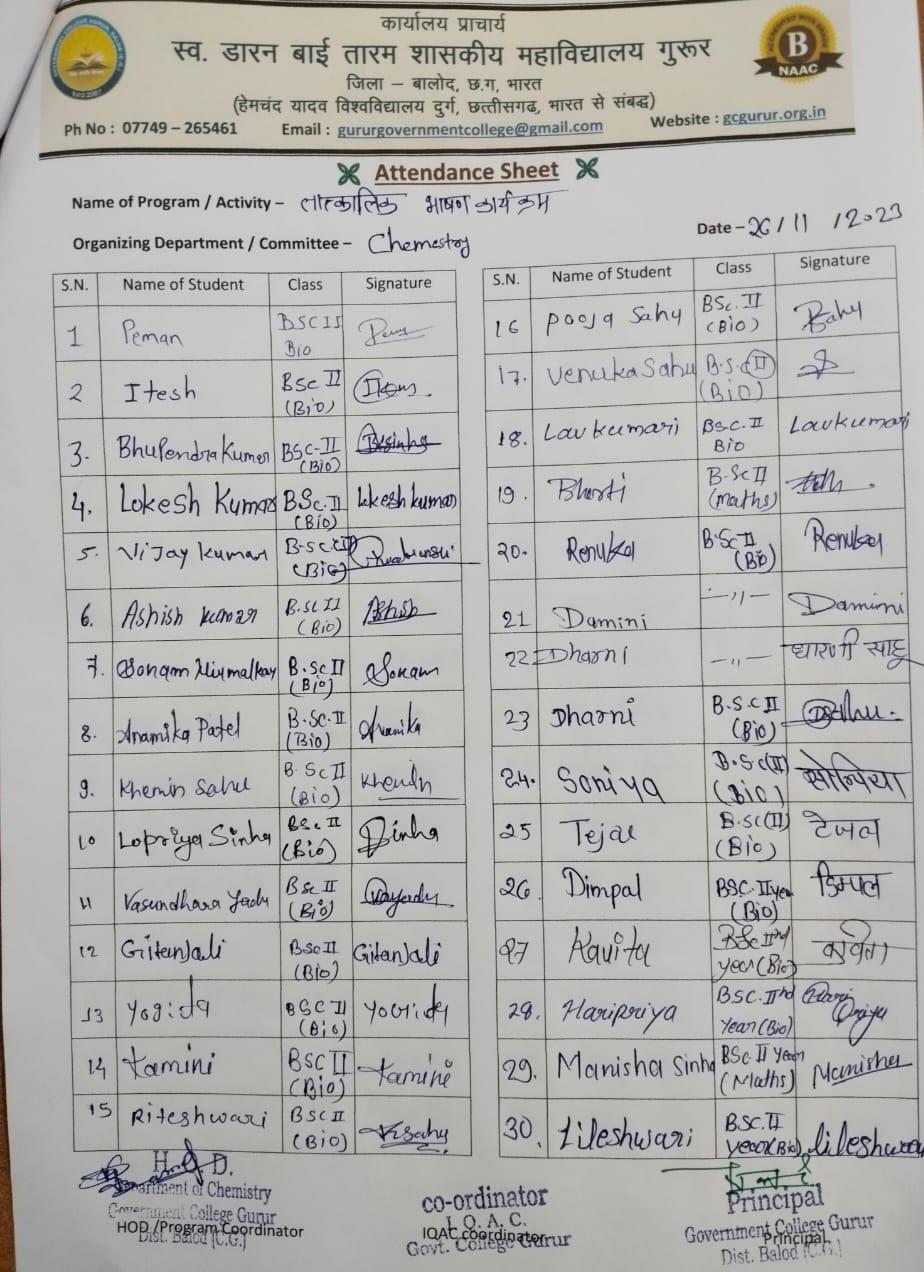 कार्यालय प्राचार्य
स्व. डारन बाई तारम शासकीय महाविद्यालय गुरूर
जिला – बालोद, छ.ग, भारत
(हेमचंद यादव विश्वविद्यालय दुर्ग, छत्तीसगढ, भारत से संबद्ध)
Ph No : 07749 – 265461 Email : gururgovernmentcollege@gmail.com Website : gcgurur.org.in
B
NAAC
Attendance Sheet
Name of Program / Activity – तात्कालिक भाषण कार्यक्रम
Date – 26/11/2023
Organizing Department / Committee – Chemestry
S.N. Name of Student Class Signature
1 Peman BSC II Bio
2 Itesh BSC II (Bio)
3. Bhupendra Kumar BSC-II (Bio)
4. Lokesh Kumar BSc.II (Bio) Lokesh kumar
5. Vijay kumar B.sc(II) (Bio)
6. Ashish kumar B.sc II (Bio) Ashish
7. Sonam Nirmalkar B.Sc II (Bio) Sonam
8. Anamika Patel B.Sc.II (Bio) Anamika
9. Khemin Sahu B.Sc II (Bio)
10 Lopriya Sinha BSc II (Bio) Sinha
11 Vasundhara Yadu BSc II (Bio)
12 GitanJali BSc II (Bio) GitanJali
13 Yogida BSC II (Bio) Yogida
14 Kamini BSC II (Bio) Kamini
15 Riteshwari BSC II (Bio)
S.N. Name of Student Class Signature
16 Pooja Sahu BSc.II (Bio)
17. Venuka Sahu B.S.c(II) (Bio)
18. Lavkumari BSC.II Bio Lavkumari
19. Bharti B.Sc II (maths)
20. Renuka B.Sc II (Bio) Renuka
21 Damini –,,– Damini
22 Dharni –,,– धारणी साहू
23 Dharni B.S.C II (Bio)
24. Soniya B.Sc(II) (Bio)
25 Tejal B.sc(II) (Bio) टेजल
26 Dimpal BSC.II year (Bio) डिम्पल
27 Kavita BSc IInd year (Bio) कविता
28. Haripriya BSC.IInd Year (Bio) Hari Priya
29. Manisha Sinha BSc II Year (Maths) Manisha
30. Lileshwari BSC.II year (Bio) Lileshwari
H.O.D.
Department of Chemistry
Government College Gurur
HOD /Program Coordinator
Dist. Balod (C.G.)
co-ordinator
I. Q. A. C.
IQAC coordinator
Govt. College Gurur
Principal
Government College Gurur
Principal
Dist. Balod (C.G.)